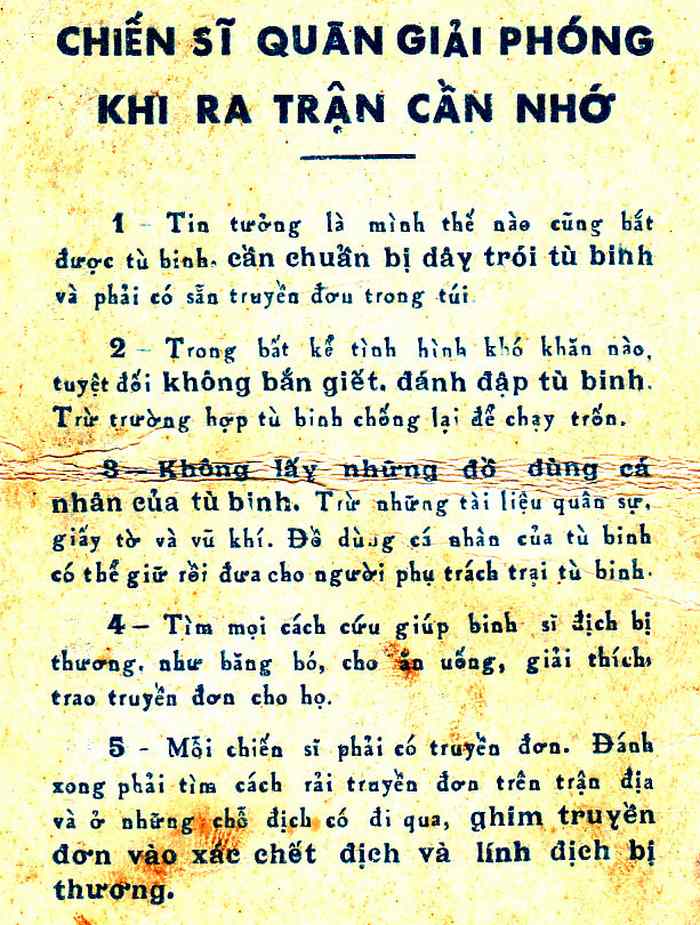 CHIẾN SĨ QUÂN GIẢI PHÓNG
KHI RA TRẬN CẦN NHỚ
1 - Tin tưởng là mình thế nào cũng bắt
được tù binh. cần chuẩn bị dây trói tù binh
và phải có sẵn truyền đơn trong túi.
2 - Trong bất kể tình hình khó khăn nào,
tuyệt đối không bắn giết. đánh đập tù binh.
Trừ trường hợp tù binh chống lại để chạy trốn.
3 - Không lấy những đồ dùng cá
nhân của tù binh. Trừ những tài liệu quân sự.
giấy tờ và vũ khí. Đồ dùng cá nhân của tù binh
có thể giữ rồi đưa cho người phụ trách trại tù binh.
4 - Tìm mọi cách cứu giúp binh sĩ địch bị
thương. như băng bó, cho ăn uống, giải thích,
trao truyền đơn cho họ.
5 - Mỗi chiến sĩ phải có truyền đơn. Đánh
xong phải tìm cách rải truyền đơn trên trận địa
và ở những chỗ địch có đi qua, ghim truyền
đơn vào xác chết địch và lính địch bị
thương.